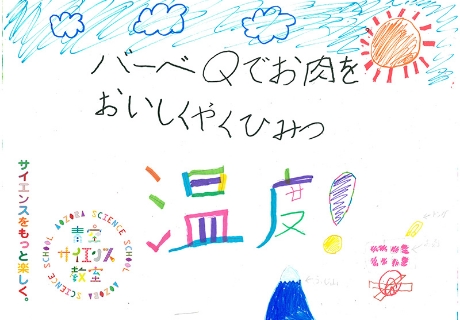 バーベQでお肉を
おいしくやくひみつ
温度!
サイエンスをもっと楽しく。
AOZORA SCIENCE SCHOOL
青空
サイエンス
教室